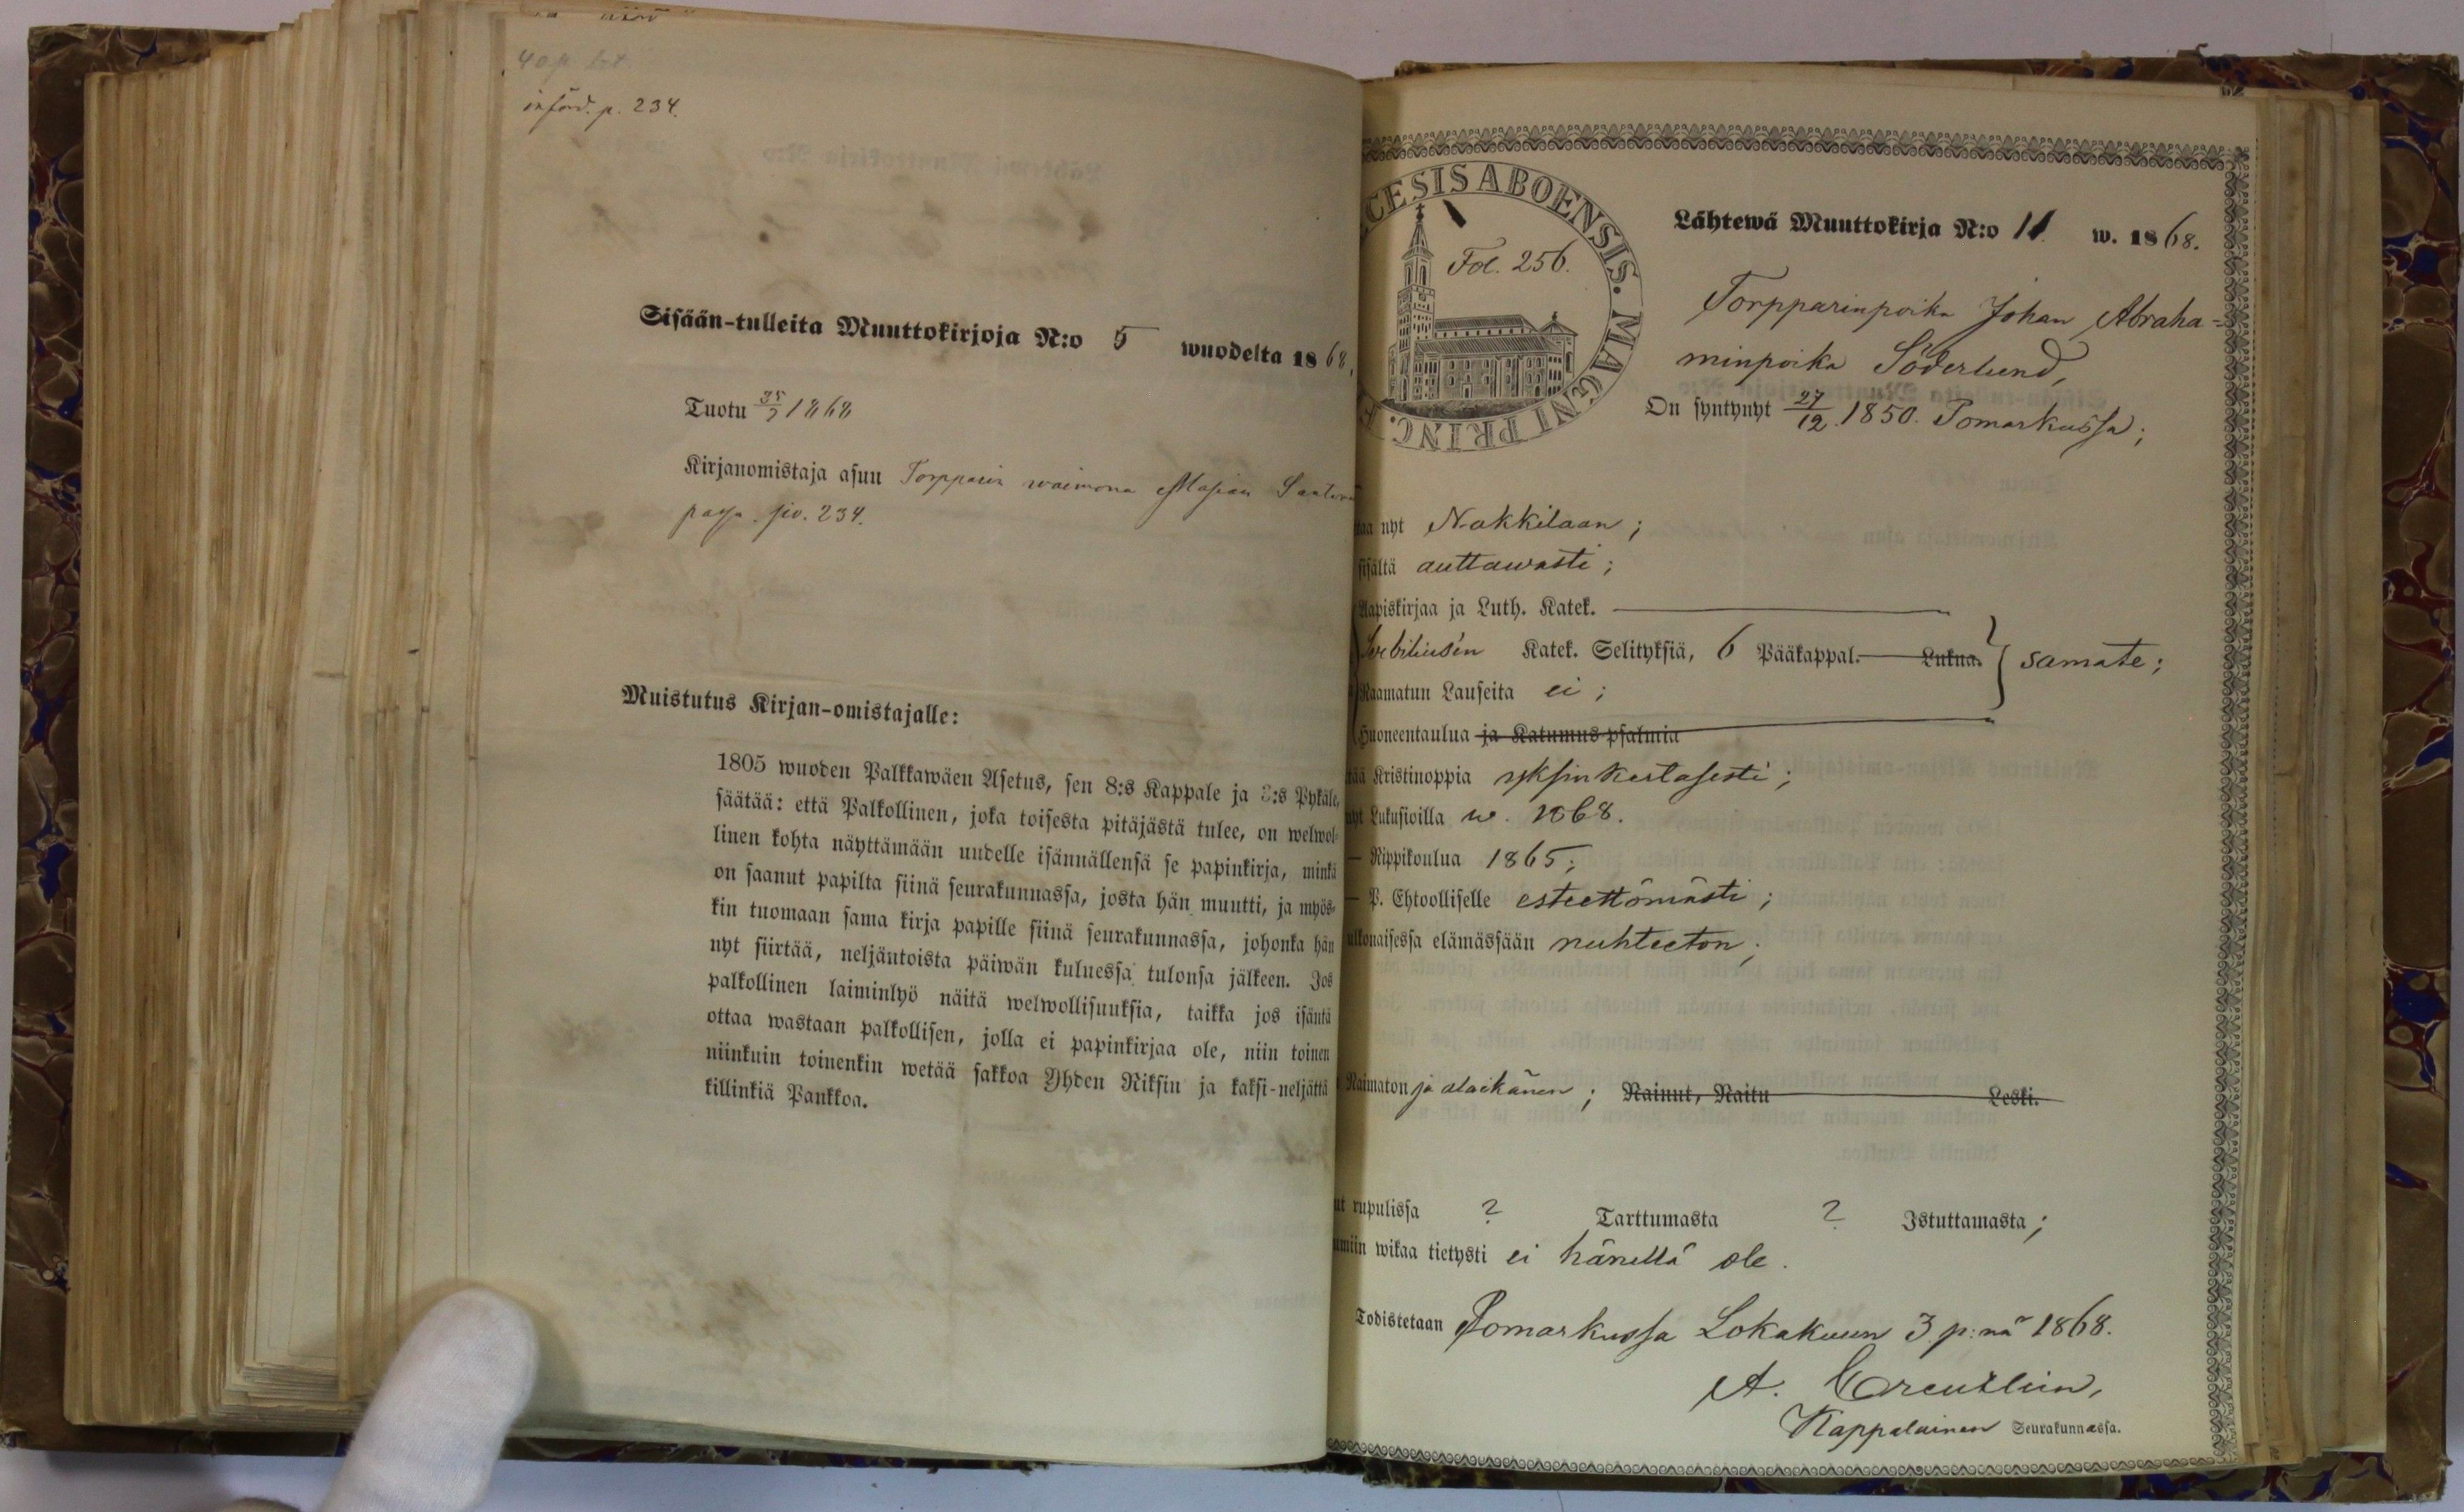 införd. p. 234.
Sisään-tulleita Muuttokirjoja N:o 5 wuodelta 1868.
Tuotu 1868
Kirjanomistaja asuu Torpparin waimona
pag. 234.
Muistutus Kirjan-omistajalle:
1805 wuoden Palkkawäen Asetus, sen 8:s Kappale ja :s Pykäle,
säätää: että Palkollinen, joka toisesta pitäjästä tulee, on welwol-
linen kohta näyttämään uudelle isännällensä se papinkirja, minkä
on saanut papilta siinä seurakunnassa, josta hän muutti, ja myös-
kin tuomaan sama kirja papille siinä seurakunnassa, johonka hän
nyt siirtää, neljäntoista päiwän kuluessa tulonsa jälkeen. Jos
palkollinen laiminlyö näitä welwollisuuksia, taikka jos isäntä
ottaa wastaan palkollisen, jolla ei papinkirjaa ole, niin toinen
niinkuin toinenkin wetää sakkoa Yhden Riksin ja kaksi-neljättä
killinkiä Pankkoa.
CESIS ABOENSIS. MAGNI PRINC.
Fol. 256.
Lähtewä Muuttokirja N:o 11. w. 1868.
Torpparinpoika Johan Abraha-
minpoika Söderlund,
On syntynyt 27/12. 1850. Pomarkussa;
taa nyt Nakkilaan;
sisältä auttawasti;
Aapiskirjaa ja Luth. Katek.
Katek. Selityksiä, 6 Pääkappal. Lukua. samate;
Raamatun Lauseita ei;
Huoneentaulua ja Katumus-psalmia
tää Kristinoppia yksinkertasesti;
nyt Lukusioilla w. 1868.
— Rippikoulua 1865;
— P. Ehtoolliselle esteettömästi;
ulkonaisessa elämässään nuhteeton;
Naimaton ja alaikänen; Nainut, Naitu Leski.
ut rupulissa ? Tarttumasta ? Istuttamasta;
umiin wikaa tietysti ei hänellä ole.
Todistetaan Pomarkussa Lokakuun 3 p:nä 1868.
A.
Kappalainen Seurakunnassa.